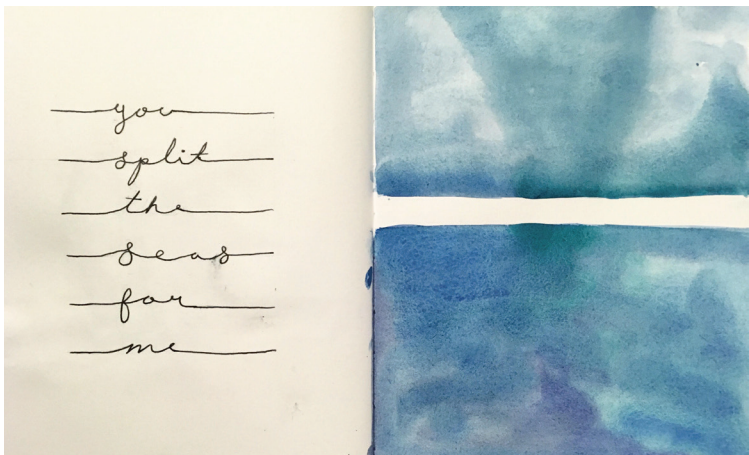 you
split
the
seas
for
me